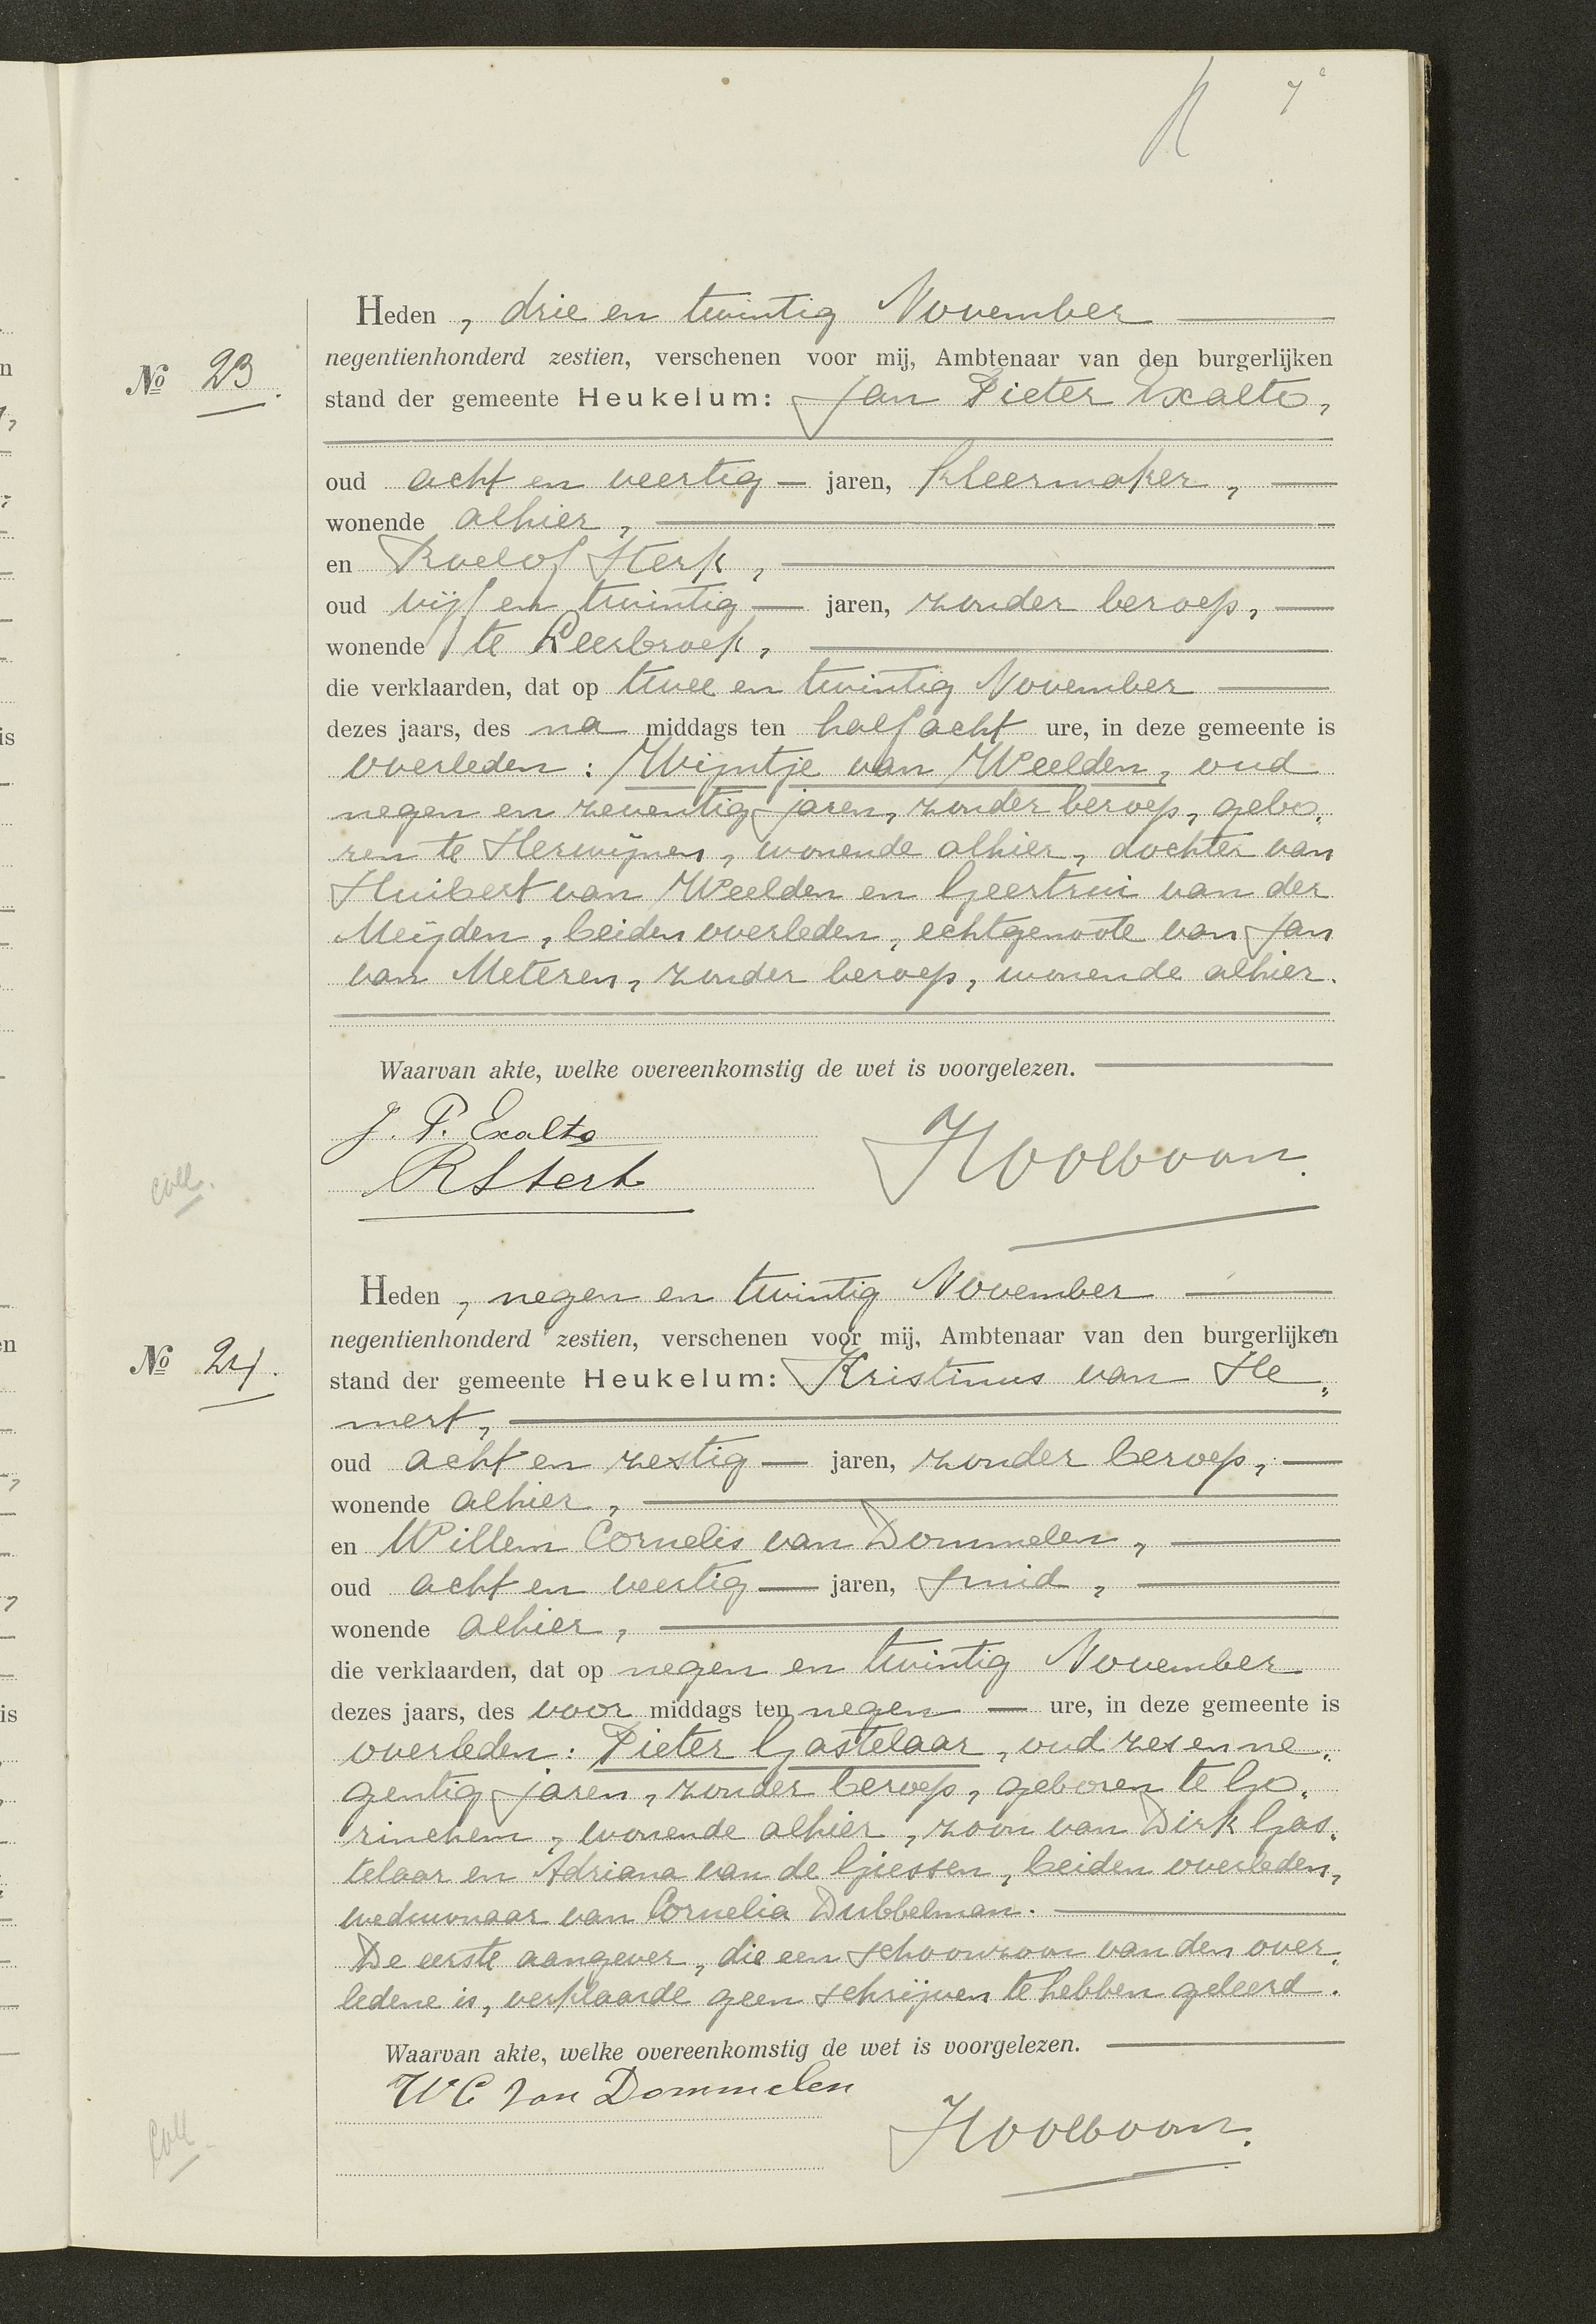 7e
Heden, drie en twintig November
negentienhonderd zestien, verschenen voor mij, Ambtenaar van den burgerlijken
No 23.
stand der gemeente Heukelum: Jan Pieter Exalto,
oud acht en veertig jaren, kleermaker,
wonende alhier,
en Roelof Sterk,
oud vijf en twintig jaren, zonder beroep,
wonende te Leerbroek,
die verklaarden, dat op twee en twintig November
dezes jaars, des na middags ten half acht ure, in deze gemeente is
overleden: Wijntje van Weelden, oud
negen en zeventig jaren, zonder beroep, gebo„
ren te Herwijnen, wonende alhier, dochter van
Huibert van Weelden en Geertrui van der
Meijden, beiden overleden, echtgenoote van Jan
van Meteren, zonder beroep, wonende alhier.
Waarvan akte, welke overeenkomstig de wet is voorgelezen.
J. P. Exalto
R Sterk
Koolboon.
coll.
Heden, negen en twintig November
negentienhonderd zestien, verschenen voor mij, Ambtenaar van den burgerlijken
No 24.
stand der gemeente Heukelum: Kristinus van He„
mert,
oud acht en zestig jaren, zonder beroep,
wonende alhier,
en Willem Cornelis van Dommelen,
oud acht en veertig jaren, smid,
wonende alhier,
die verklaarden, dat op negen en twintig November
dezes jaars, des voor middags ten negen ure, in deze gemeente is
overleden: Pieter Gastelaar, oud zes en ne„
gentig jaren, zonder beroep, geboren te Go„
rinchem, wonende alhier, zoon van Dirk Gas„
telaar en Adriana van de Giessen, beiden overleden,
weduwnaar van Cornelia Dubbelman.
De eerste aangever, die een schoonzoon van den over„
ledene is, verklaarde geen schrijven te hebben geleerd.
Waarvan akte, welke overeenkomstig de wet is voorgelezen.
W C van Dommelen
Koolboon.
Coll.